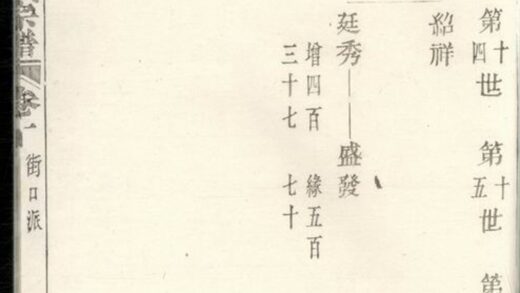 第十四世 第十五世 第
紹祥
廷秀——盛發
增四百 緣五百
三十七 七十
宗譜 卷一 街口派